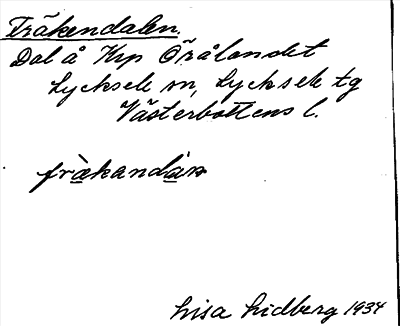 Fräkendalen.
Dal å Krp Örålandet
Lycksele sn, Lycksele tg
Västerbottens l.
fràkandàn
Lisa Lidberg 1934